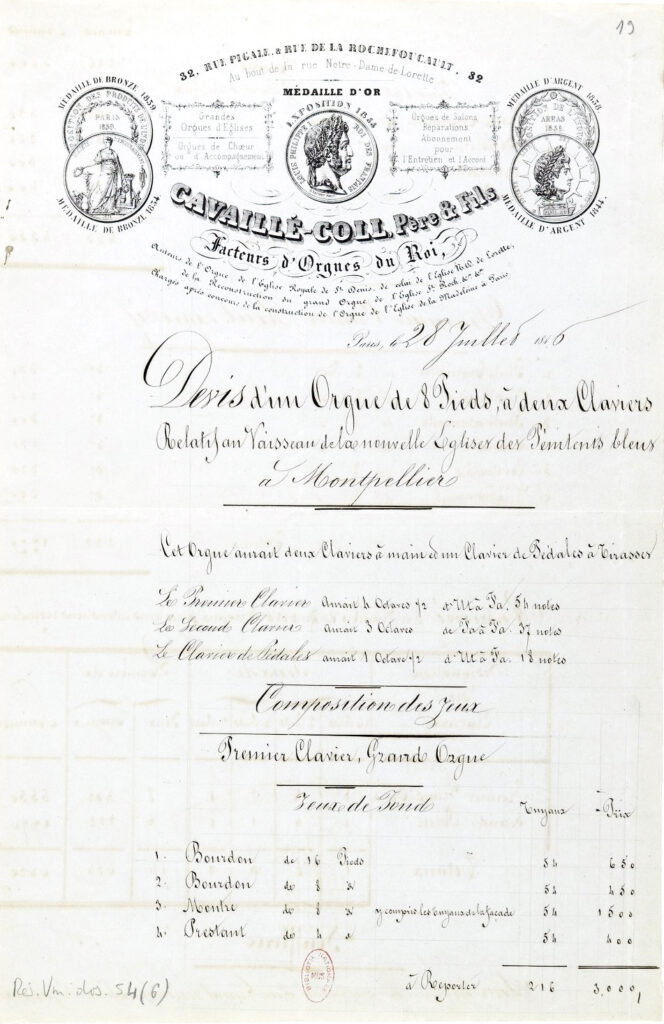 19
32, RUE PIGALE, & RUE DE LA ROCHEFOUCAULT. 32
Au bout de la rue Notre-Dame-de-Lorette
MÉDAILLE DE BRONZE 1839
EXPOSITION DES PRODUITS DE L'INDUSTRIE
PARIS
1839
MÉDAILLE DE BRONZE 1834
Grandes
Orgues d'Eglises
Orgues de Chœur
ou d'Accompagnement
MÉDAILLE D'OR
EXPOSITION 1844
LOUIS PHILIPPE I ROI DES FRANÇAIS
Orgues de Salons
Réparations
Abonnement
pour
l'Entretien et l'Accord
MÉDAILLE D'ARGENT 1838
ARRAS
1838
MÉDAILLE D'ARGENT 1844
CAVAILLÉ-COLL, Père & Fils
Facteurs d'Orgues du Roi,
Auteurs de l'Orgue de l'Eglise Royale de St. Denis, de celui de l'Eglise N.D. de Lorette,
de la Reconstruction du grand Orgue de l'Eglise St. Roch, &c. &c.
Chargés après concours de la construction de l'Orgue de l'Eglise de la Madeleine à Paris
Paris, le 28 Juillet 1846
Devis d'un Orgue de 8 Pieds, à deux Claviers
Relatif au Vaisseau de la nouvelle Eglise des Pénitents bleus
à Montpellier
Cet Orgue aurait deux Claviers à main et un Clavier de Pédales à Tirasses
Le Premier Clavier aurait 4 Octaves 1/2 d'Ut à Fa. 54 notes
Le Second Clavier aurait 3 Octaves de Fa à Fa. 37 notes
Le Clavier de Pédales aurait 1 Octave 1/2 d'Ut à Fa. 18 notes
Composition des Jeux
Premier Clavier, Grand Orgue
Jeux de Fond Tuyaux Prix
1. Bourdon de 16 Pieds 54 650
2. Bourdon de 8 " 54 450
3. Montre de 8 " y compris les tuyaux de la façade 54 1500
4. Prestant de 4 " 54 400
à Reporter 216 3,000,
Rés. Vm. dos. 54 (6)